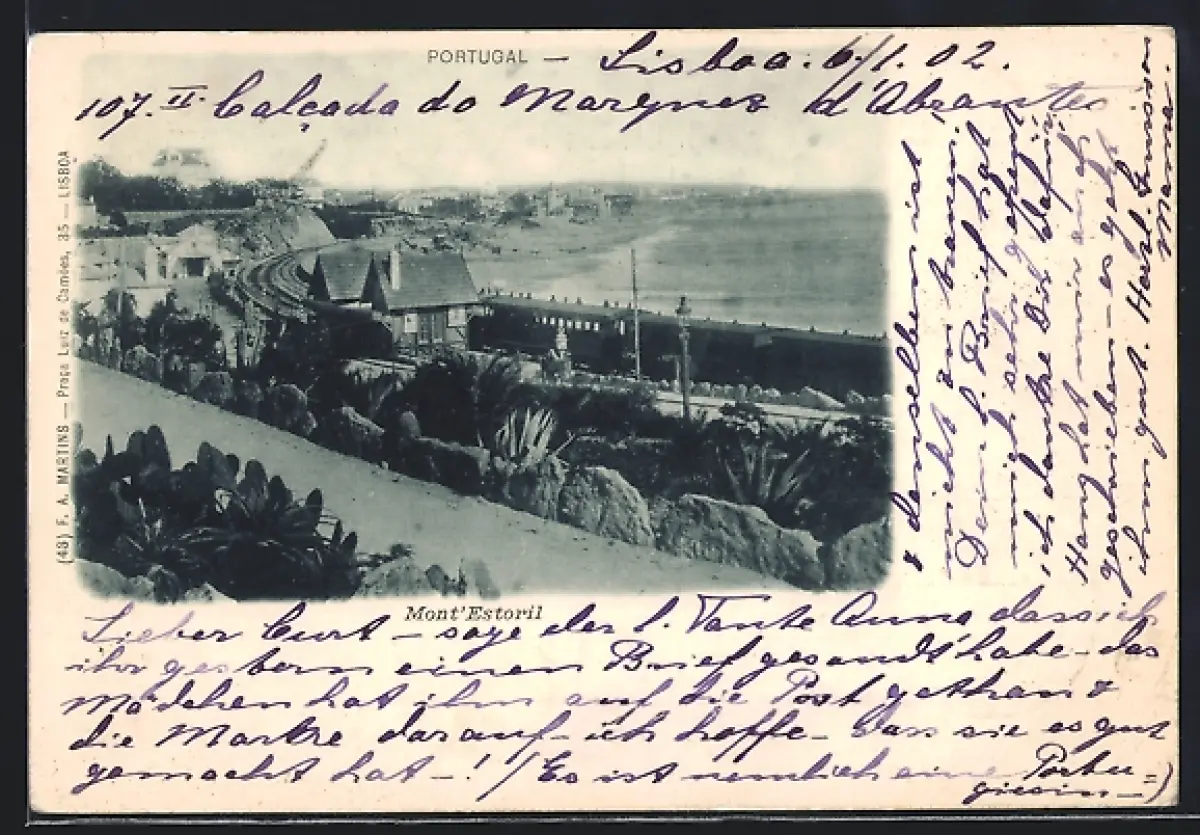 PORTUGAL — Lisboa. 6/1.02.
107. II. Calçada do Marquez d'Abrantes
(43) F. A. MARTINS — Praça Luiz de Camões, 35 — LISBOA
Mont'Estoril
Lieber Curt – sage der l. Tante Anna dass ich
ihr gestern einen Brief gesandt habe – das
Mädchen hat ihn auf die Post gethan &
die Marke darauf – ich hoffe – dass sie es gut
gemacht hat – ! (Es ist nemlich eine Portu=
giesin –)
& demselben ist
nicht zu
Dein l. Brief hat
mich sehr gefreut
ich danke Dir dafür
Hans hat mir auch
geschrieben – es geht
ihm gut. Herzl. Gruss von
Mama.